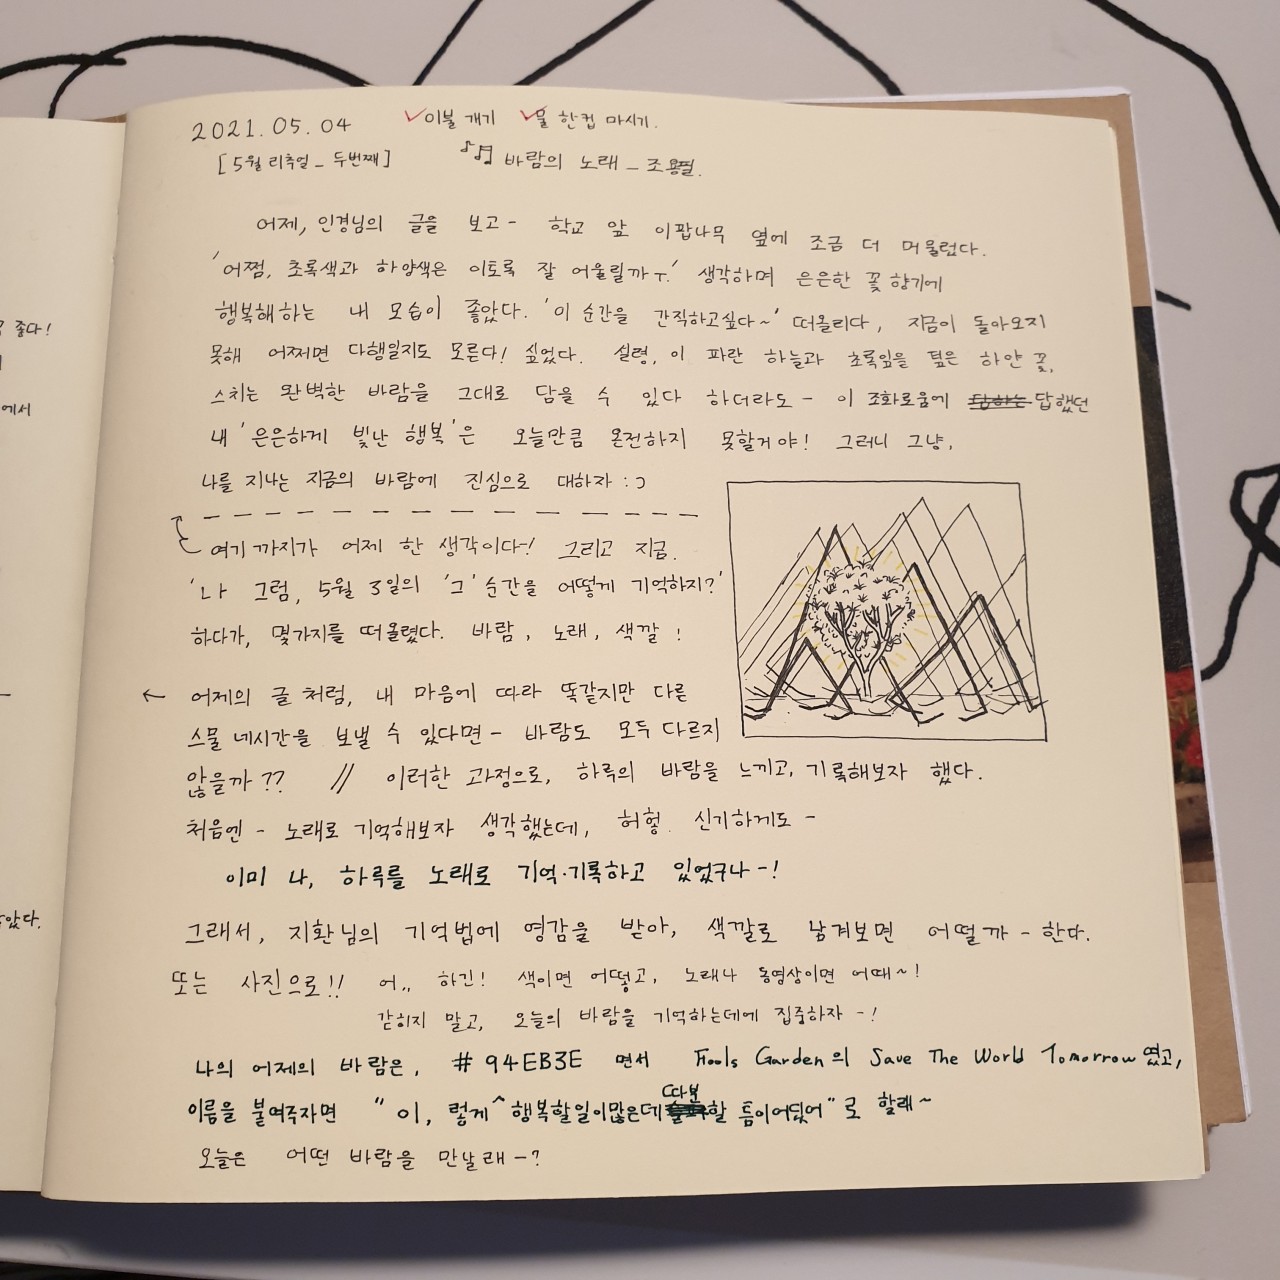 2021. 05. 04 ✓이불 개기 ✓물 한컵 마시기.
[5월 리추얼 _ 두번째] ♪♬ 바람의 노래 _ 조용필.
어제, 인경님의 글을 보고 - 학교 앞 이팝나무 옆에 조금 더 머물렀다.
'어쩜, 초록색과 하얀색은 이토록 잘 어울릴까ㅜ' 생각하며 은은한 꽃 향기에
행복해하는 내 모습이 좋았다. '이 순간을 간직하고싶다~' 떠올리다, 지금이 돌아오지
못해 어쩌면 다행일지도 모른다! 싶었다. 설령, 이 파란 하늘과 초록잎을 덮은 하얀 꽃,
스치는 완벽한 바람을 그대로 담을 수 있다 하더라도 - 이 조화로움에 답했던
내 '은은하게 빛난 행복'은 오늘만큼 온전하지 못할거야! 그러니 그냥,
나를 지나는 지금의 바람에 진심으로 대하자 :)
여기까지가 어제 한 생각이다-! 그리고 지금.
'나 그럼, 5월 3일의 '그' 순간을 어떻게 기억하지?'
하다가, 몇가지를 떠올렸다. 바람, 노래, 색깔 !
← 어제의 글처럼, 내 마음에 따라 똑같지만 다른
스물 네시간을 보낼 수 있다면 - 바람도 모두 다르지
않을까?? // 이러한 과정으로, 하루의 바람을 느끼고, 기록해보자 했다.
처음엔 - 노래로 기억해보자 생각했는데, 허헝. 신기하게도 -
이미 나, 하루를 노래로 기억·기록하고 있었구나-!
그래서, 지환님의 기억법에 영감을 받아, 색깔로 남겨보면 어떨까 - 한다.
또는 사진으로!! 어,, 하긴! 색이면 어떻고, 노래나 동영상이면 어때~!
갇히지 말고, 오늘의 바람을 기억하는데에 집중하자 -!
나의 어제의 바람은, #94EB3E 면서 Fools Garden의 Save The World Tomorrow였고,
이름을 붙여주자면 "이, 렇게^행복할일이많은데 따분할 틈이어딨어"로 할래~
오늘은 어떤 바람을 만날래-?
좋다!
에서
았다.